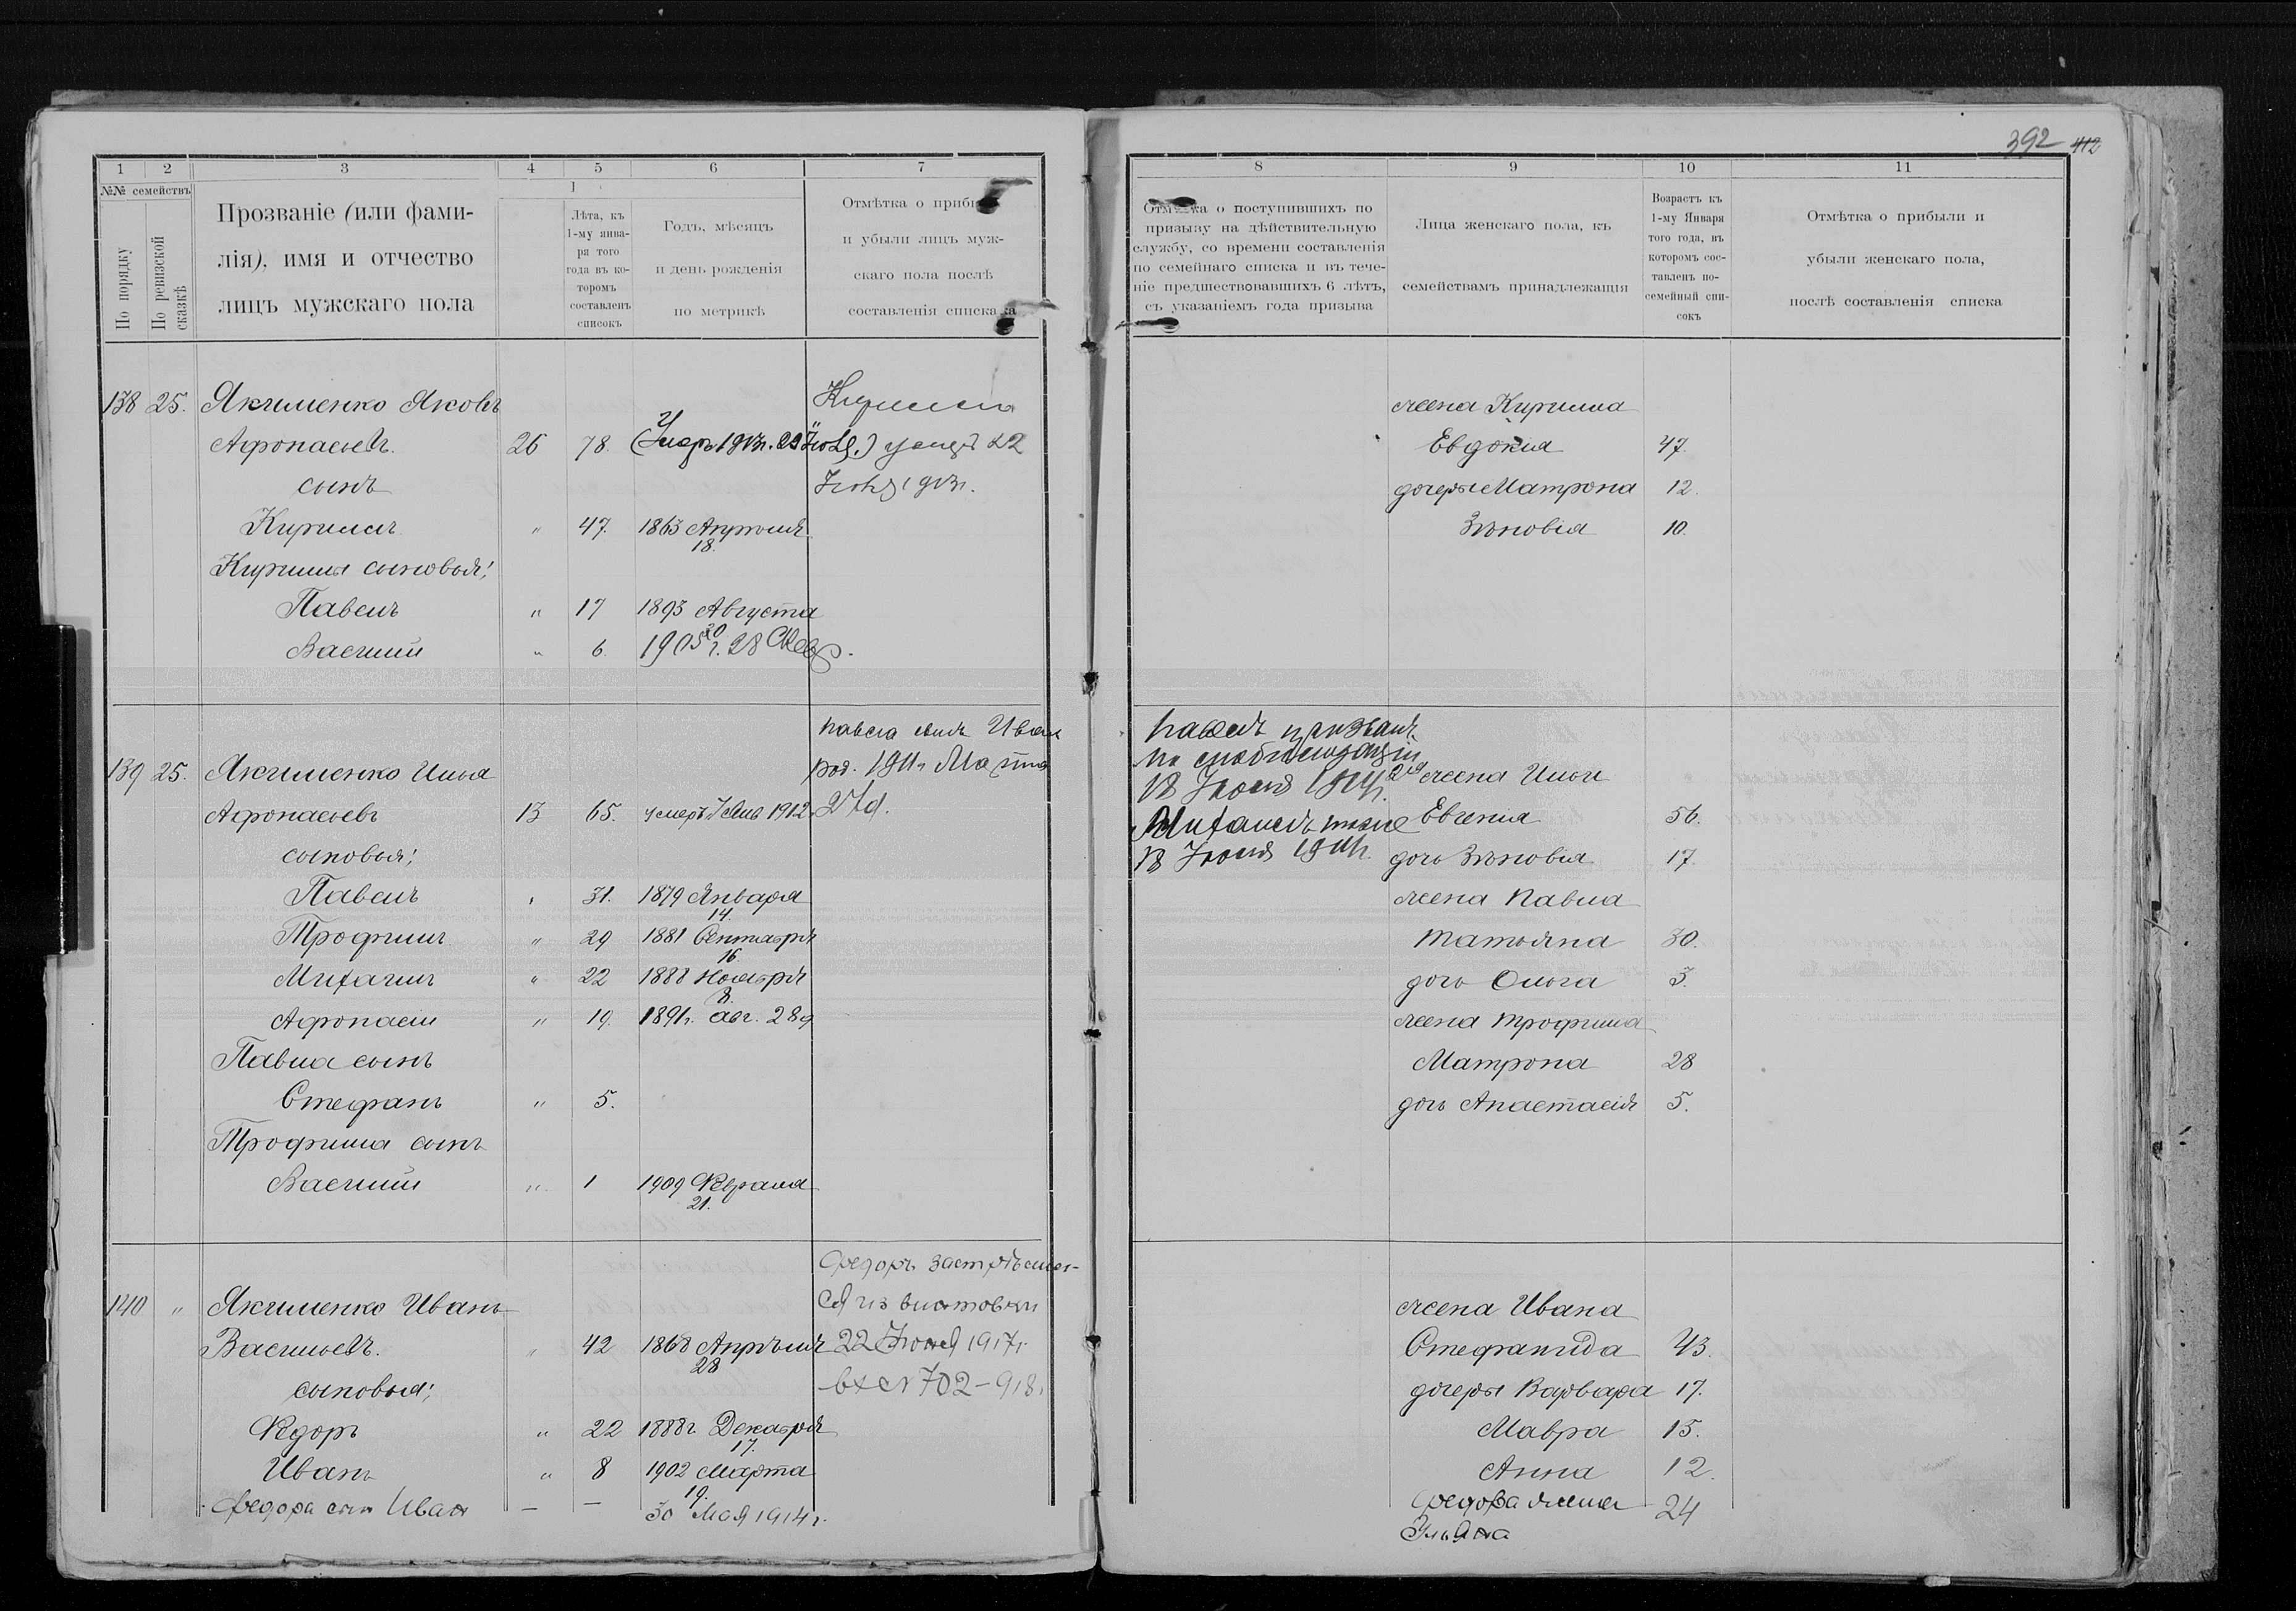 392 412
1 2 3 4 5 6 7
№№ семействъ
По порядку
По ревизской сказкѣ
Прозваніе (или фами-
лія), имя и отчество
лицъ мужскаго пола
Лѣта, къ
1-му янва-
ря того
года въ ко-
торомъ
составленъ
списокъ
Годъ, мѣсяцъ
и день рожденія
по метрикѣ
Отмѣтка о прибы
и убыли лицъ муж-
скаго пола послѣ
составленія списка
138 25. Якименко Яковъ
Афонасьевъ. 26 78. (Умеръ 1913г. 22
сынъ
Кириллъ " 47. 1863 Апрѣля
18.
Кирилла сыновья:
Павелъ " 17 1893 Августа
20
Василій " 6. 1905 г. 28 Февр.
139 25. Якименко Илья
Павла сынъ Иван
род. 1911г Марта
27д.
Афонасьевъ 13 65. умеръ 7 Янв 1912
сыновья:
Павелъ " 31. 1879 Января
14.
Трофимъ " 29 1881 Сентября
16.
Михаилъ " 22 1888 Ноября
8.
Афонасій " 19. 1891г. авг. 28д
Павла сынъ
Стефанъ " 5.
Трофима сынъ
Василій " 1 1909 Февраля
21.
Федоръ застрѣлил-
ся из винтовки
22 Июня 1917г.
вх N 702-918.
140 " Якименко Иванъ
Васильевъ. " 42 1868 Апрѣля
28
сыновья:
Федоръ " 22 1888г. Декабря
17.
Иванъ " 8 1902 Марта
19.
Федора сын Иван — — 30 Мая 1914г.
8 9 10 11
Отмѣтка о поступившихъ по
призыву на дѣйствительную
службу, со времени составленія
по семейнаго списка и въ тече-
ніе предшествовавшихъ 6 лѣтъ,
съ указаніемъ года призыва
Лица женскаго пола, къ
семействамъ принадлежащія
Возрастъ къ
1-му Января
того года, въ
которомъ сос-
тавленъ по-
семейный спи-
сокъ
Отмѣтка о прибыли и
убыли женскаго пола,
послѣ составленія списка
жена Кирилла
Евдокія 47.
дочеры Матрона 12.
Зѣновія 10.
Павелъ призванъ
по мобилизаціи
18 Июля 1914г.
Михаилъ тоже
18 Июля 1914г.
жена Ильи
Евгенія 56.
дочь Зѣновія 17.
жена Павла
Татьяна 30.
дочь Ольга 3.
жена Трофима
Матрона 28
дочь Анастасія 5.
жена Ивана
Стефанида 43.
дочеры Варвара 17.
Мавра 15.
Анна 12.
Федора жена 24
Ульяна